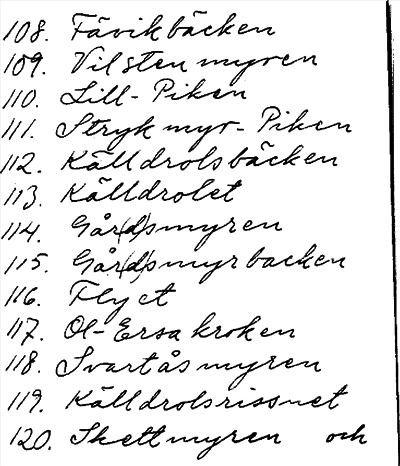 108. Fävikbäcken
109. Vilstenmyren
110. Lill-Piken
111. Strykmyr-Piken
112. Källdrolsbäcken
113. Källdrolet
114. Går(d)smyren
115. Går(d)smyrbacken
116. Flyet
117. Ol-Ersakroken
118. Svartåsmyren
119. Källdrolsrissnet
120. Skettmyren och